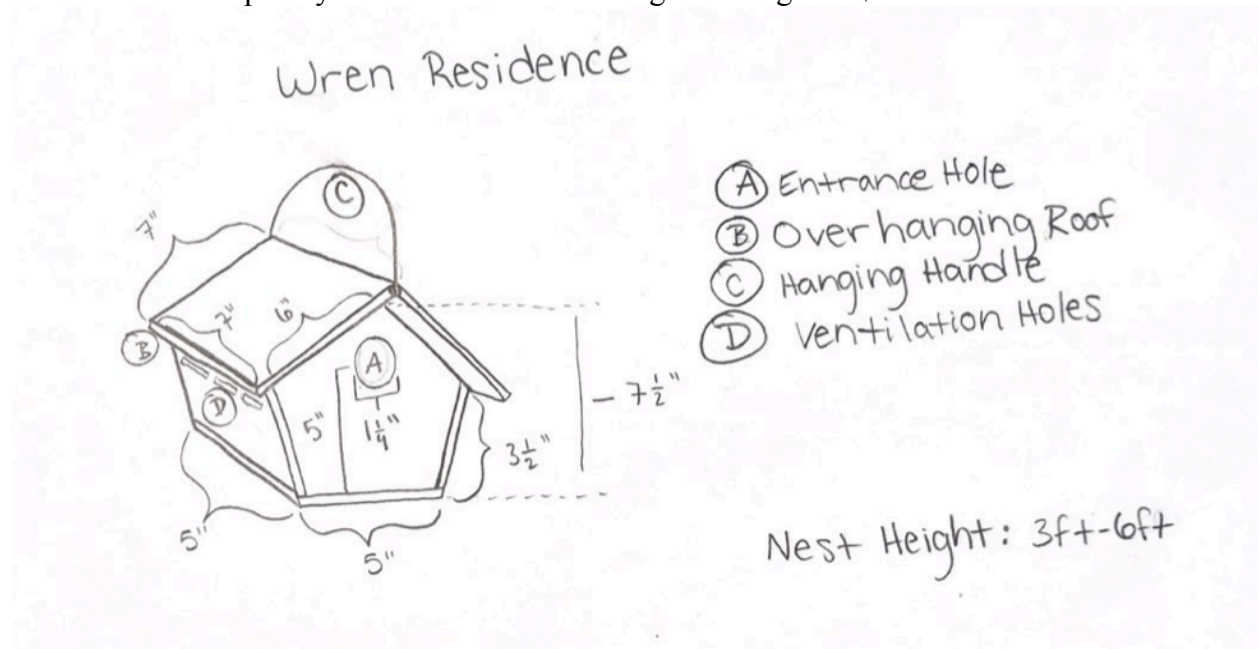 Wren Residence
Ⓐ Entrance Hole
Ⓑ Overhanging Roof
Ⓒ Hanging Handle
Ⓓ Ventilation Holes
C
7"
7"
6"
B
A
D
5"
1 1/4"
3 1/2"
– 7 1/2"
5"
5"
Nest Height: 3ft-6ft